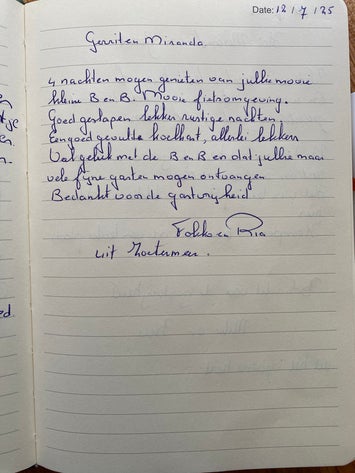 Date: 12/7/25
Gerrit en Miranda
4 nachten mogen genieten van jullie mooie
kleine B en B. Mooie fietsomgeving.
Goed geslapen lekker rustige nachten
Een goed gevulde koelkast, allerlei lekkers
Veel geluk met de B en B en dat jullie maar
vele fijne gasten mogen ontvangen
Bedankt voor de gastvrijheid
Fokko en Ria
uit Zoetermeer.
ed.